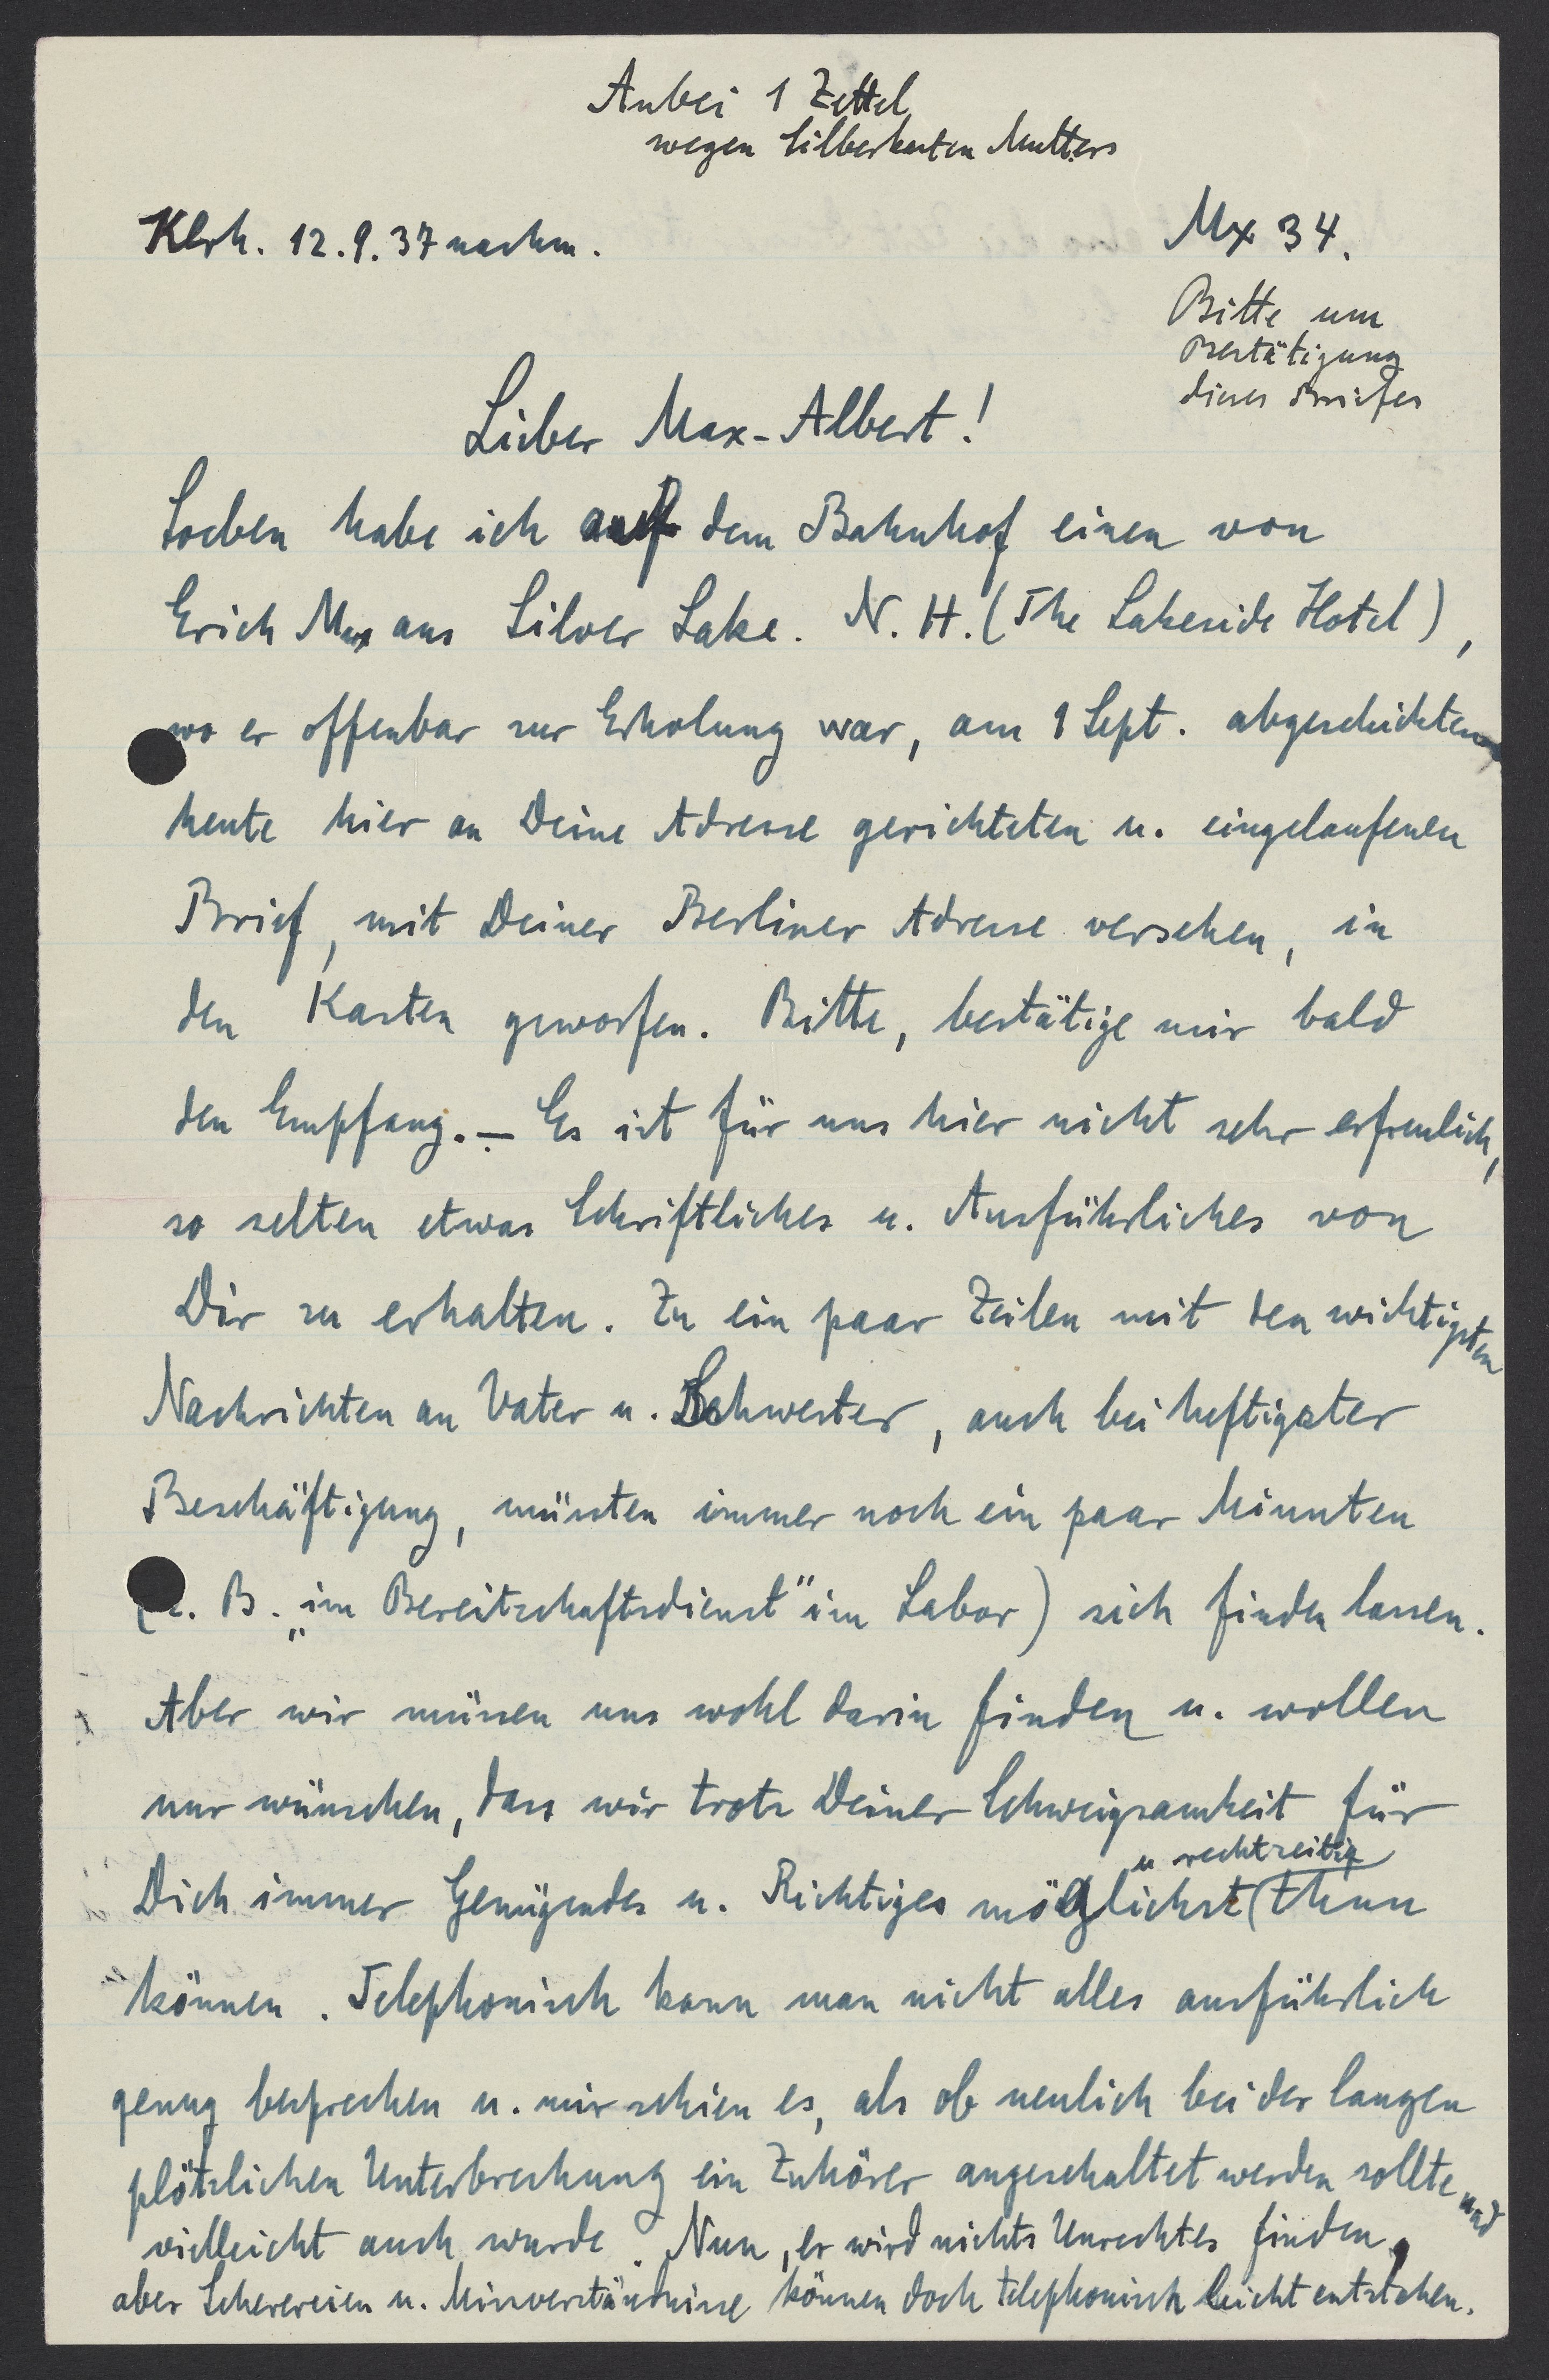 Anbei 1 Zettel
wegen Silberkasten Mutters
Klrh. 12.9.37 nachm.
Mx 34.
Bitte um
Bestätigung
dieses Briefes
Lieber Max-Albert!
Soeben habe ich auf dem Bahnhof einen von
Erich Max aus Silver Lake. N. H. (The Lakeside Hotel),
wo er offenbar zur Erholung war, am 1 Sept. abgeschickten
heute hier an Deine Adresse gerichteten u. eingelaufenen
Brief, mit Deiner Berliner Adresse versehen, in
den Kasten geworfen. Bitte, bestätige mir bald
den Empfang. — Es ist für uns hier nicht sehr erfreulich,
so selten etwas Schriftliches u. Ausführliches von
Dir zu erhalten. Zu ein paar Zeilen mit den wichtigsten
Nachrichten an Vater u. Schwester, auch bei heftigster
Beschäftigung, müssten immer noch ein paar Minuten
(z. B. „im Bereitschaftsdienst" im Labor) sich finden lassen.
Aber wir müssen uns wohl darin finden u. wollen
nur wünschen, dass wir trotz Deiner Schweigsamkeit für
u rechtzeitig
Dich immer Genügendes u. Richtiges möglichst thun
können. Telephonisch kann man nicht alles ausführlich
genug besprechen u. mir schien es, als ob neulich bei der langen
plötzlichen Unterbrechung ein Zuhörer angeschaltet werden sollte und
vielleicht auch wurde. Nun, er wird nichts Unrechtes finden,
aber Scherereien u. Missverständnisse können doch telephonisch leicht entstehen.